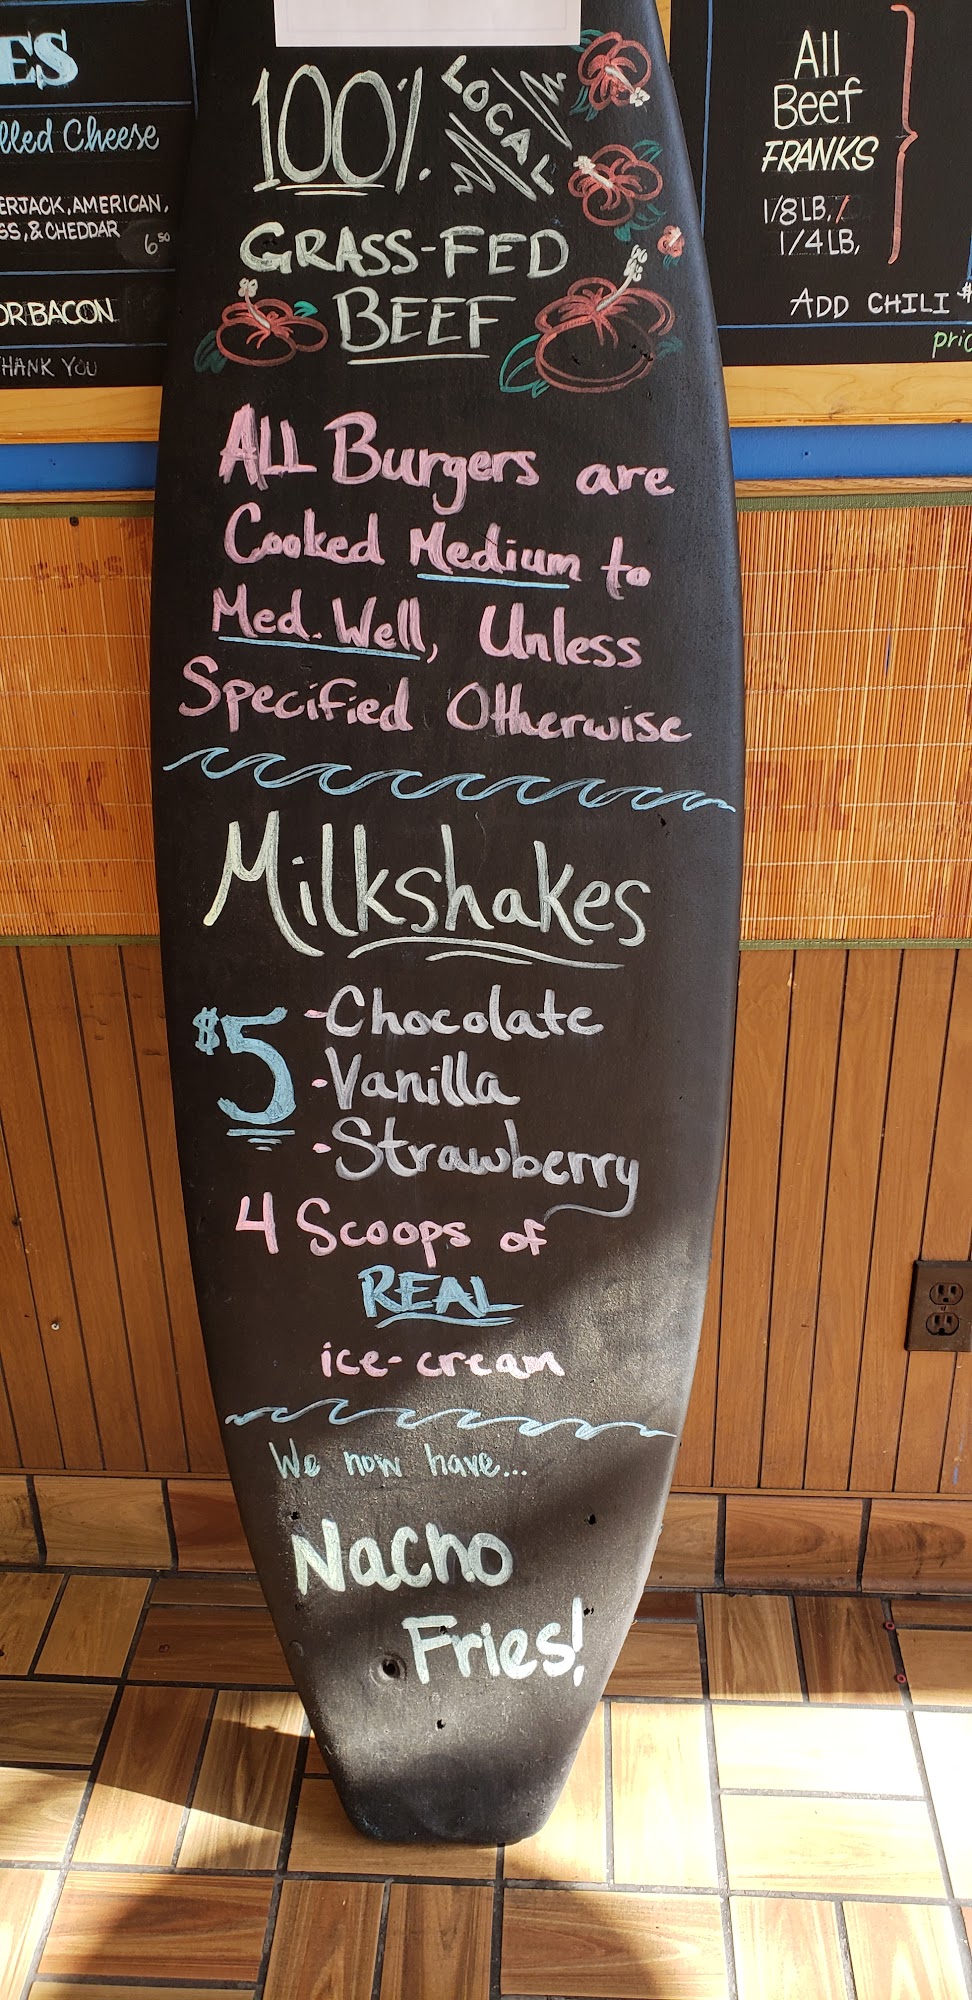 100% LOCAL
GRASS-FED
BEEF
ALL Burgers are
Cooked Medium to
Med. Well, Unless
Specified Otherwise
Milkshakes
$5
-Chocolate
-Vanilla
-Strawberry
4 Scoops of
REAL
ice-cream
We now have...
Nacho
Fries!
ES
lled Cheese
ERJACK, AMERICAN,
SS, & CHEDDAR
6.50
OR BACON
THANK YOU
All
Beef
FRANKS
1/8 LB,
1/4 LB,
ADD CHILI $
pric